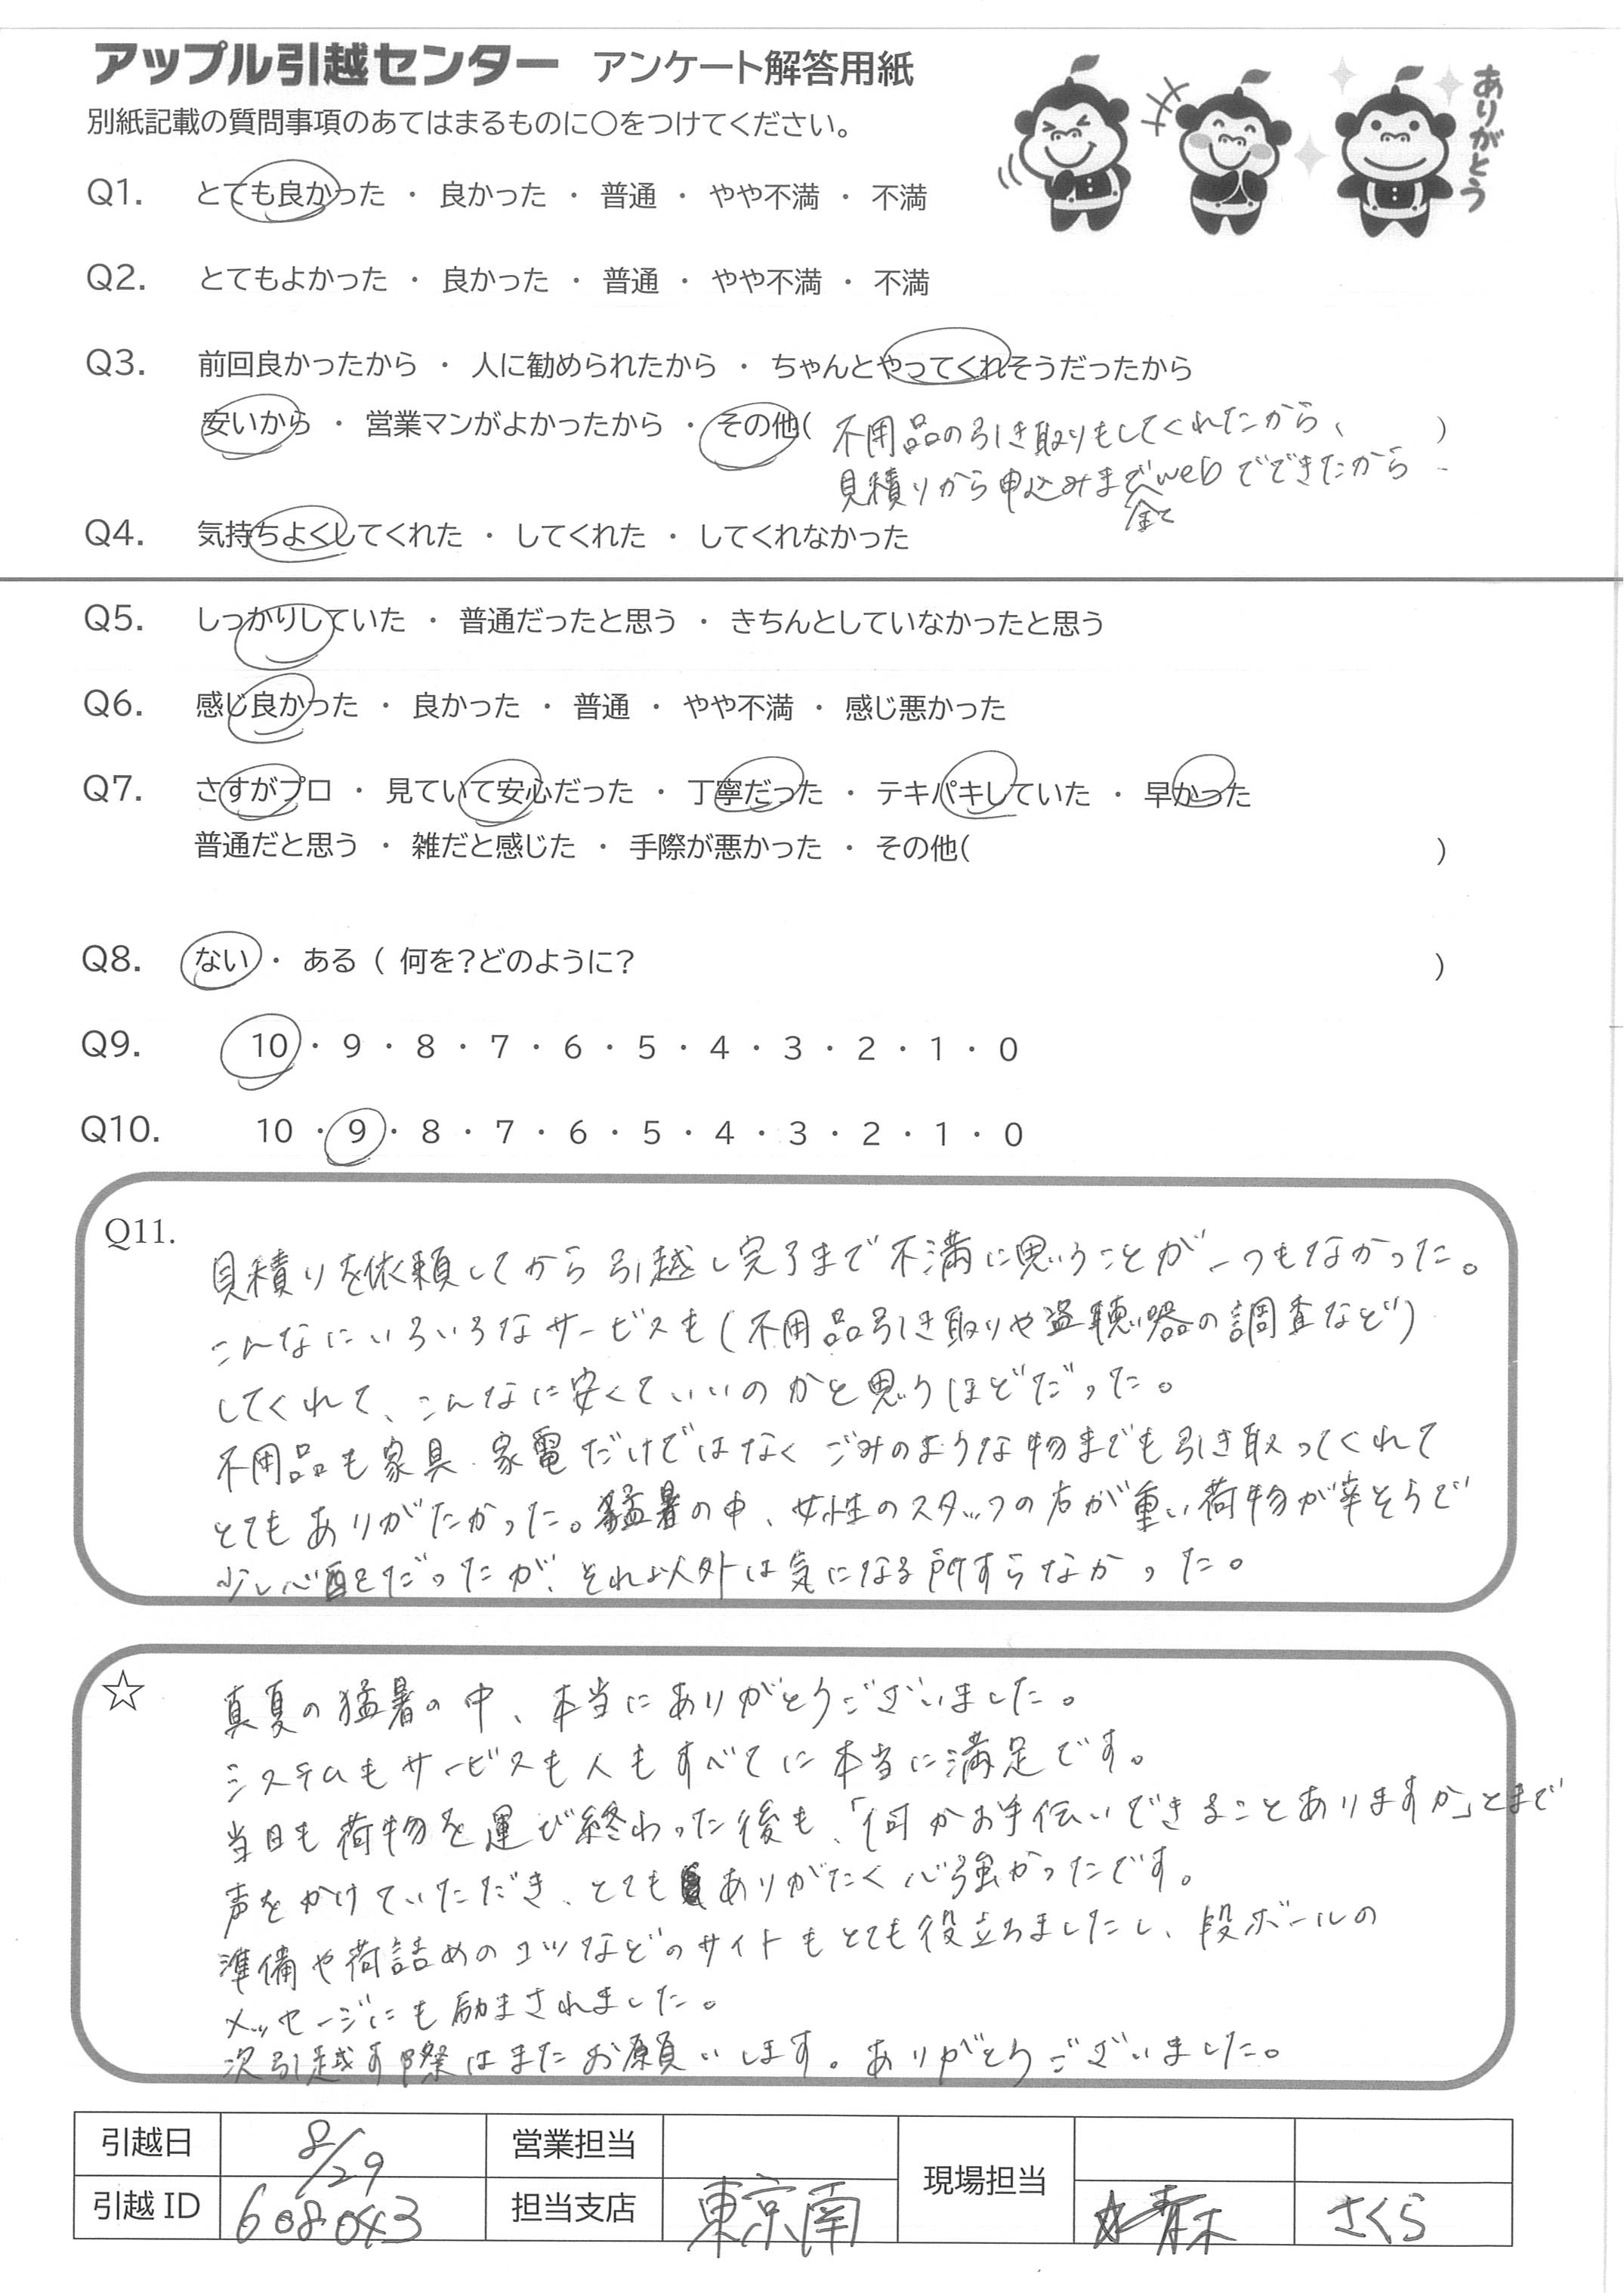 アップル引越センター アンケート解答用紙
別紙記載の質問事項のあてはまるものに○をつけてください。
ありがとう
Q1. とても良かった ・ 良かった ・ 普通 ・ やや不満 ・ 不満
Q2. とてもよかった ・ 良かった ・ 普通 ・ やや不満 ・ 不満
Q3. 前回良かったから ・ 人に勧められたから ・ ちゃんとやってくれそうだったから
安いから ・ 営業マンがよかったから ・ その他( 不用品の引き取りもしてくれたから、 )
見積りから申込みまで全てwebでできたから
Q4. 気持ちよくしてくれた ・ してくれた ・ してくれなかった
Q5. しっかりしていた ・ 普通だったと思う ・ きちんとしていなかったと思う
Q6. 感じ良かった ・ 良かった ・ 普通 ・ やや不満 ・ 感じ悪かった
Q7. さすがプロ ・ 見ていて安心だった ・ 丁寧だった ・ テキパキしていた ・ 早かった
普通だと思う ・ 雑だと感じた ・ 手際が悪かった ・ その他( )
Q8. ない ・ ある ( 何を?どのように? )
Q9. 10 ・ 9 ・ 8 ・ 7 ・ 6 ・ 5 ・ 4 ・ 3 ・ 2 ・ 1 ・ 0
Q10. 10 ・ 9 ・ 8 ・ 7 ・ 6 ・ 5 ・ 4 ・ 3 ・ 2 ・ 1 ・ 0
Q11.
見積りを依頼してから引越し完了まで不満に思うことが一つもなかった。
こんなにいろいろなサービスも(不用品引き取りや盗聴器の調査など)
してくれて、こんなに安くていいのかと思うほどだった。
不用品も家具、家電だけではなくごみのような物までも引き取ってくれて
とてもありがたかった。猛暑の中、女性のスタッフの方が重い荷物が辛そうで
少し心配だったが、それ以外は気になる所すらなかった。
☆
真夏の猛暑の中、本当にありがとうございました。
システムもサービスも人もすべてに本当に満足です。
当日も荷物を運び終わった後も、「何かお手伝いできることありますか」とまで
声をかけていただき、とてもありがたく心強かったです。
準備や荷詰めのコツなどのサイトもとても役立ちましたし、段ボールの
メッセージにも励まされました。
次引越す際はまたお願いします。ありがとうございました。
引越日 8/29 営業担当 現場担当
引越 ID 608043 担当支店 東京南 青木 さくら